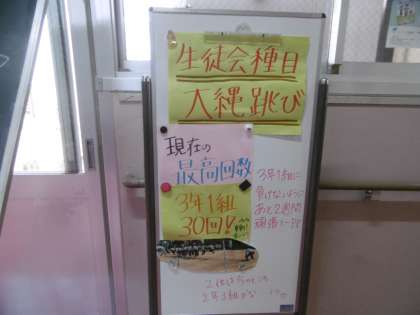 生徒会種目
大縄跳び
現在の
最高回数
3年1組
30回!
3年1組に
負けないように
あと2週間
頑張ろう!